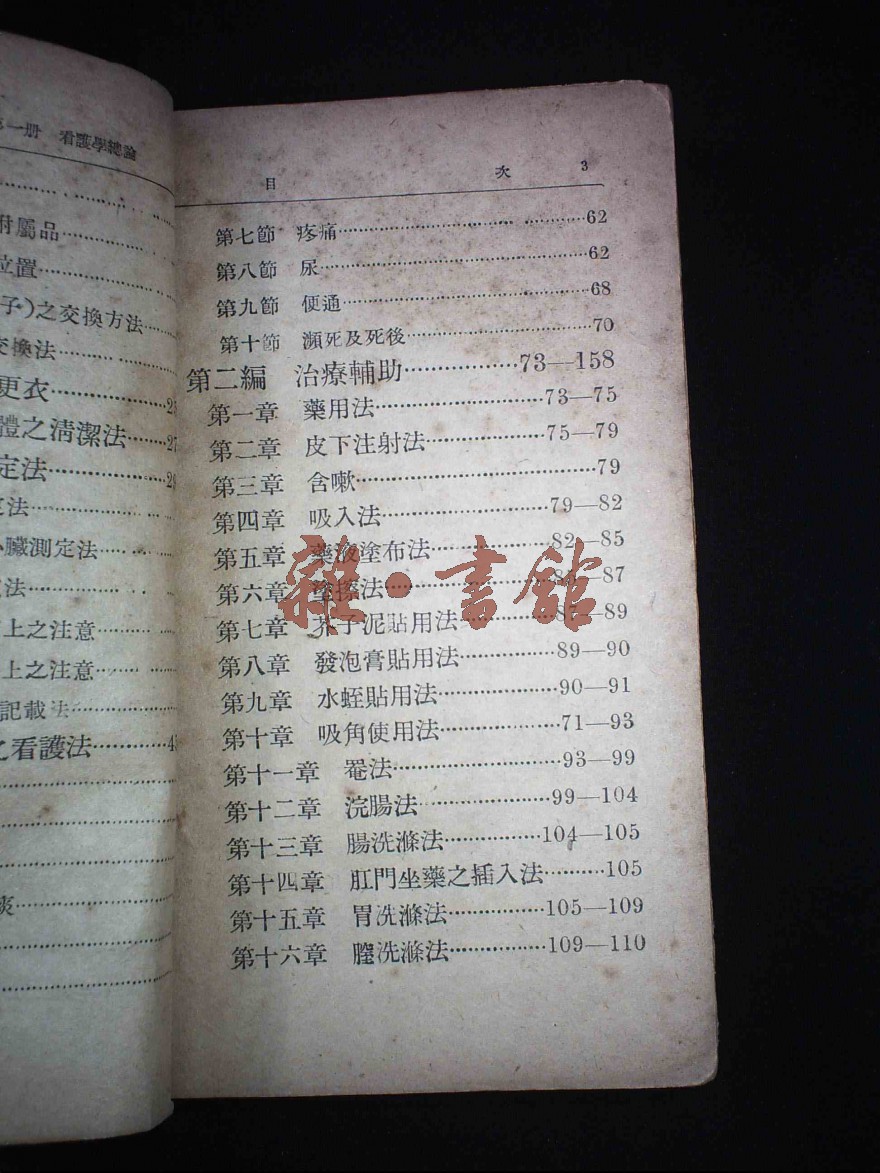 第一册 看護學總論
附屬品
位置
子)之交換方法
交換法
更衣
體之清潔法……27
定法……29
法
臟測定法
法
上之注意
上之注意
記載法
之看護法
目 次 3
第七節 疼痛……62
第八節 尿……62
第九節 便通……68
第十節 瀕死及死後……70
第二編 治療輔助……73—158
第一章 藥用法……73—75
第二章 皮下注射法……75—79
第三章 含嗽……79
第四章 吸入法……79—82
第五章 藥液塗布法……82—85
第六章 塗擦法……85—87
第七章 芥子泥貼用法……87—89
第八章 發泡膏貼用法……89—90
第九章 水蛭貼用法……90—91
第十章 吸角使用法……71—93
第十一章 罨法……93—99
第十二章 浣腸法……99—104
第十三章 腸洗滌法……104—105
第十四章 肛門坐藥之插入法……105
第十五章 胃洗滌法……105—109
第十六章 膣洗滌法……109—110
雜·書館